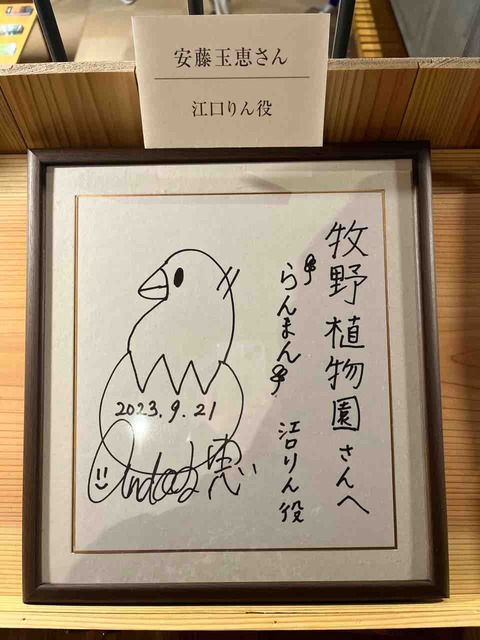 安藤玉恵さん
江口りん役
牧野植物園さんへ
らんまん
江口りん役
2023.9.21